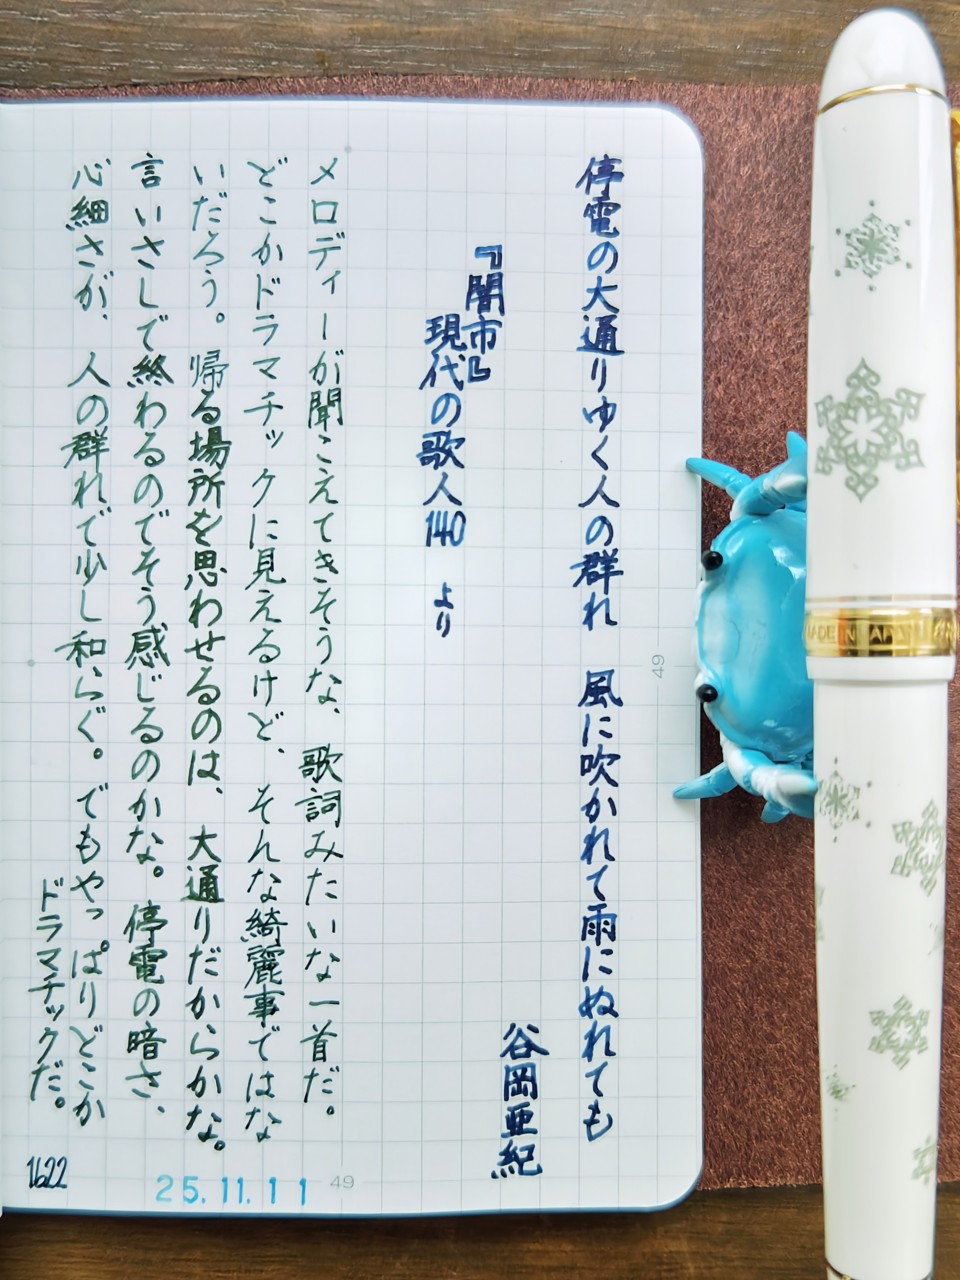 停電の大通りゆく人の群れ　風に吹かれて雨にぬれても
谷岡亜紀
『闇市』
現代の歌人140　より
メロディーが聞こえてきそうな、歌詞みたいな一首だ。
どこかドラマチックに見えるけど、そんな綺麗事ではな
いだろう。帰る場所を思わせるのは、大通りだからかな。
言いさしで終わるのでそう感じるのかな。停電の暗さ、
心細さが、人の群れで少し和らぐ。でもやっぱりどこか
ドラマチックだ。
1622
25.11.11
49
49
MADE IN JAPAN